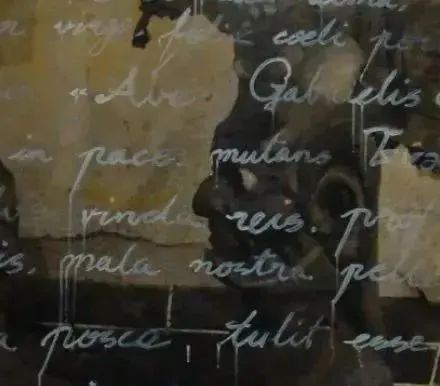 virgo felix coeli por
Ave Gabrielis
in pace mutans
vincla reis. prof
is. mala nostra pell
a posce tulit esse